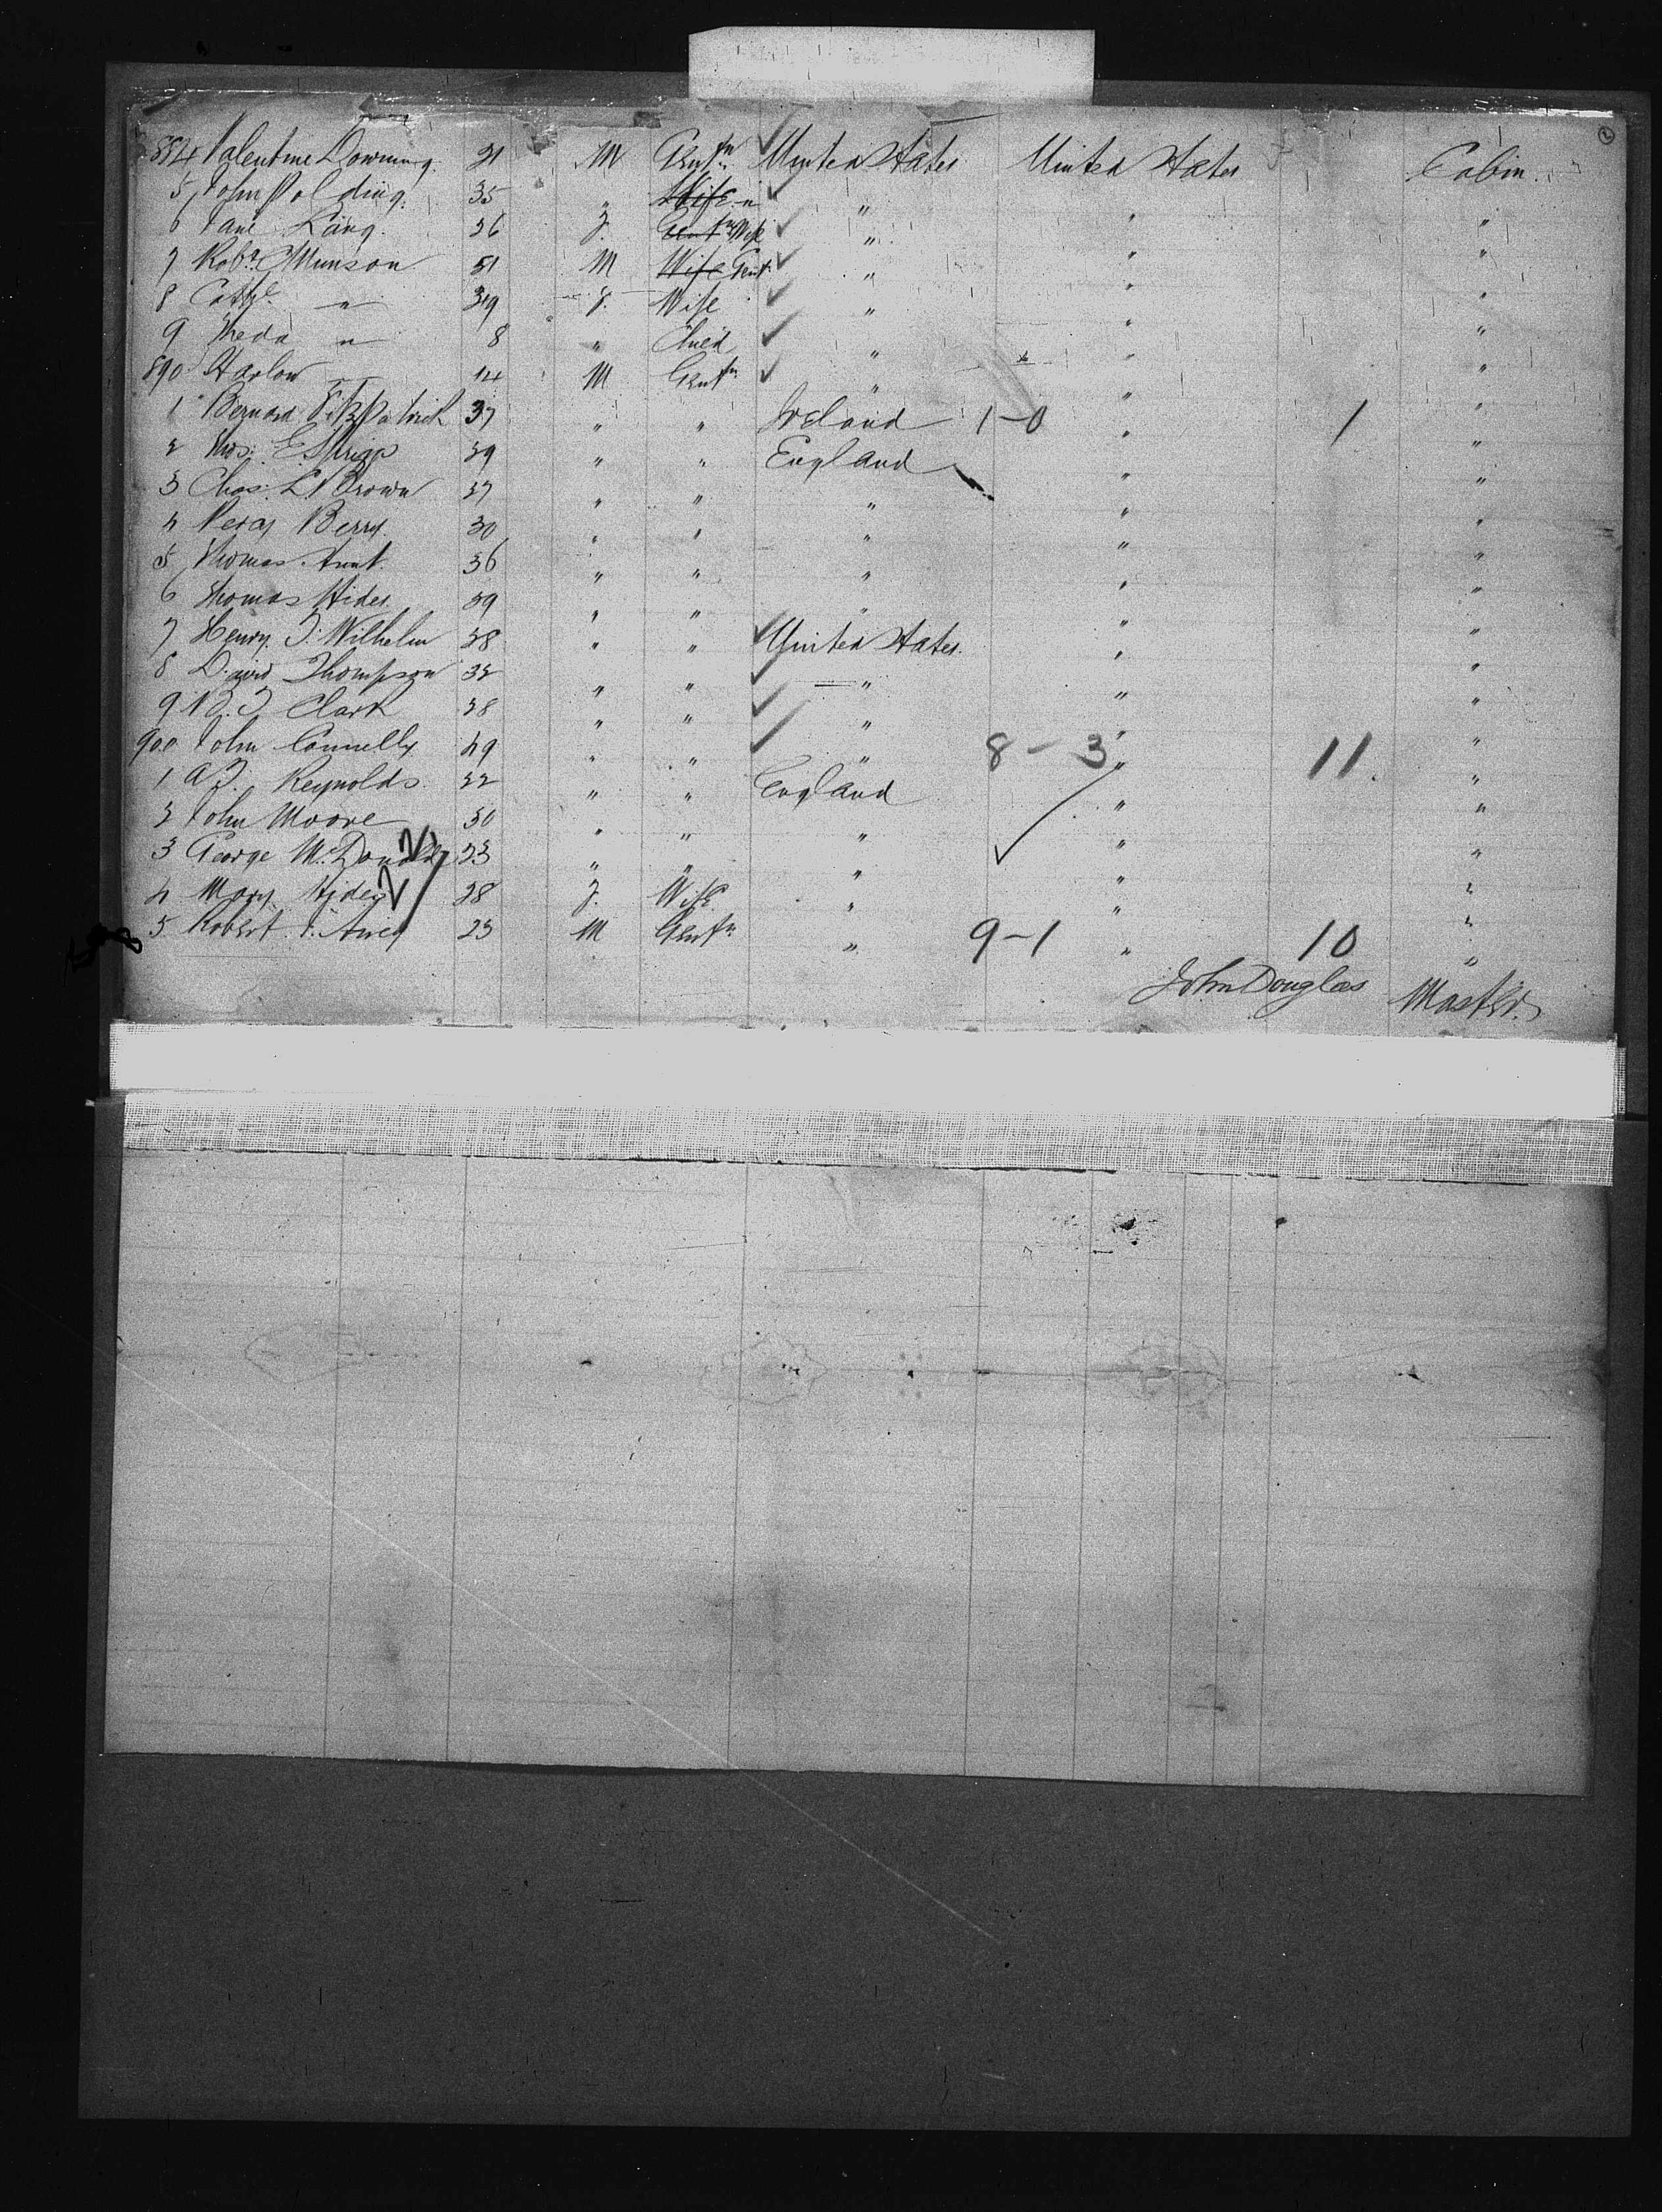 884 Valentine Downing. 21 M Gentn United States United States Cabin.
5 John Polding. 35 " Wife " " " "
6 Jane Lang. 26 F. Gentn Wife " " "
7 Robt. Munson 51 M Wife Gent. " " "
8 Cathe " 39 F. Wife " " "
9 Theda " 8 " Child " " "
890 Harlow 14 M Gentn " " "
1 Bernard Fitzpatrick 37 " " Ireland 1-0 " 1 "
2 Thos. 29 " " England " "
3 Chas. L. Brown 27 " " " " "
4 Percy Berry. 30 " " " " "
5 Thomas Hunt. 36 " " " " "
6 Thomas Hides 29 " " " " "
7 Henry. T. Wilhelm 28 " " United States. " "
8 David Thompson 32 " " " " "
9 B. T. Clark 28 " " " " "
900 John Connelly 49 " " " 8-3 " 11. "
1 A T. Reynolds. 22 " " England " "
2 John Moore 30 " " " " "
3 George McDonald 23 " " " " "
4 Mary Hides 28 F. Wife " " "
5 Robert. 23 M Gentn " 9-1 " 10 "
John Douglas Master.